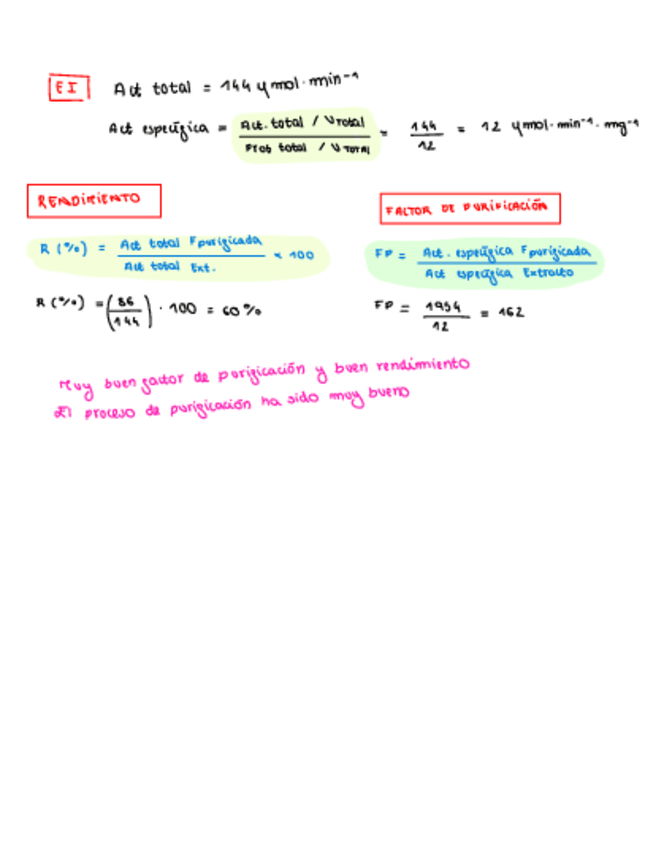 EI Act total = 144 µmol · min⁻¹
Act específica = Act. total / V total / Prot total / V TOTAL = 144 / 12 = 12 µmol · min⁻¹ · mg⁻¹
RENDIMIENTO
FACTOR DE PURIFICACIÓN
R (%) = Act total F purificada / Act total Ext. × 100
FP = Act. específica F purificada / Act específica Extracto
R (%) = (86 / 144) · 100 = 60 %
FP = 1954 / 12 = 162
Muy buen factor de purificación y buen rendimiento
El proceso de purificación ha sido muy bueno